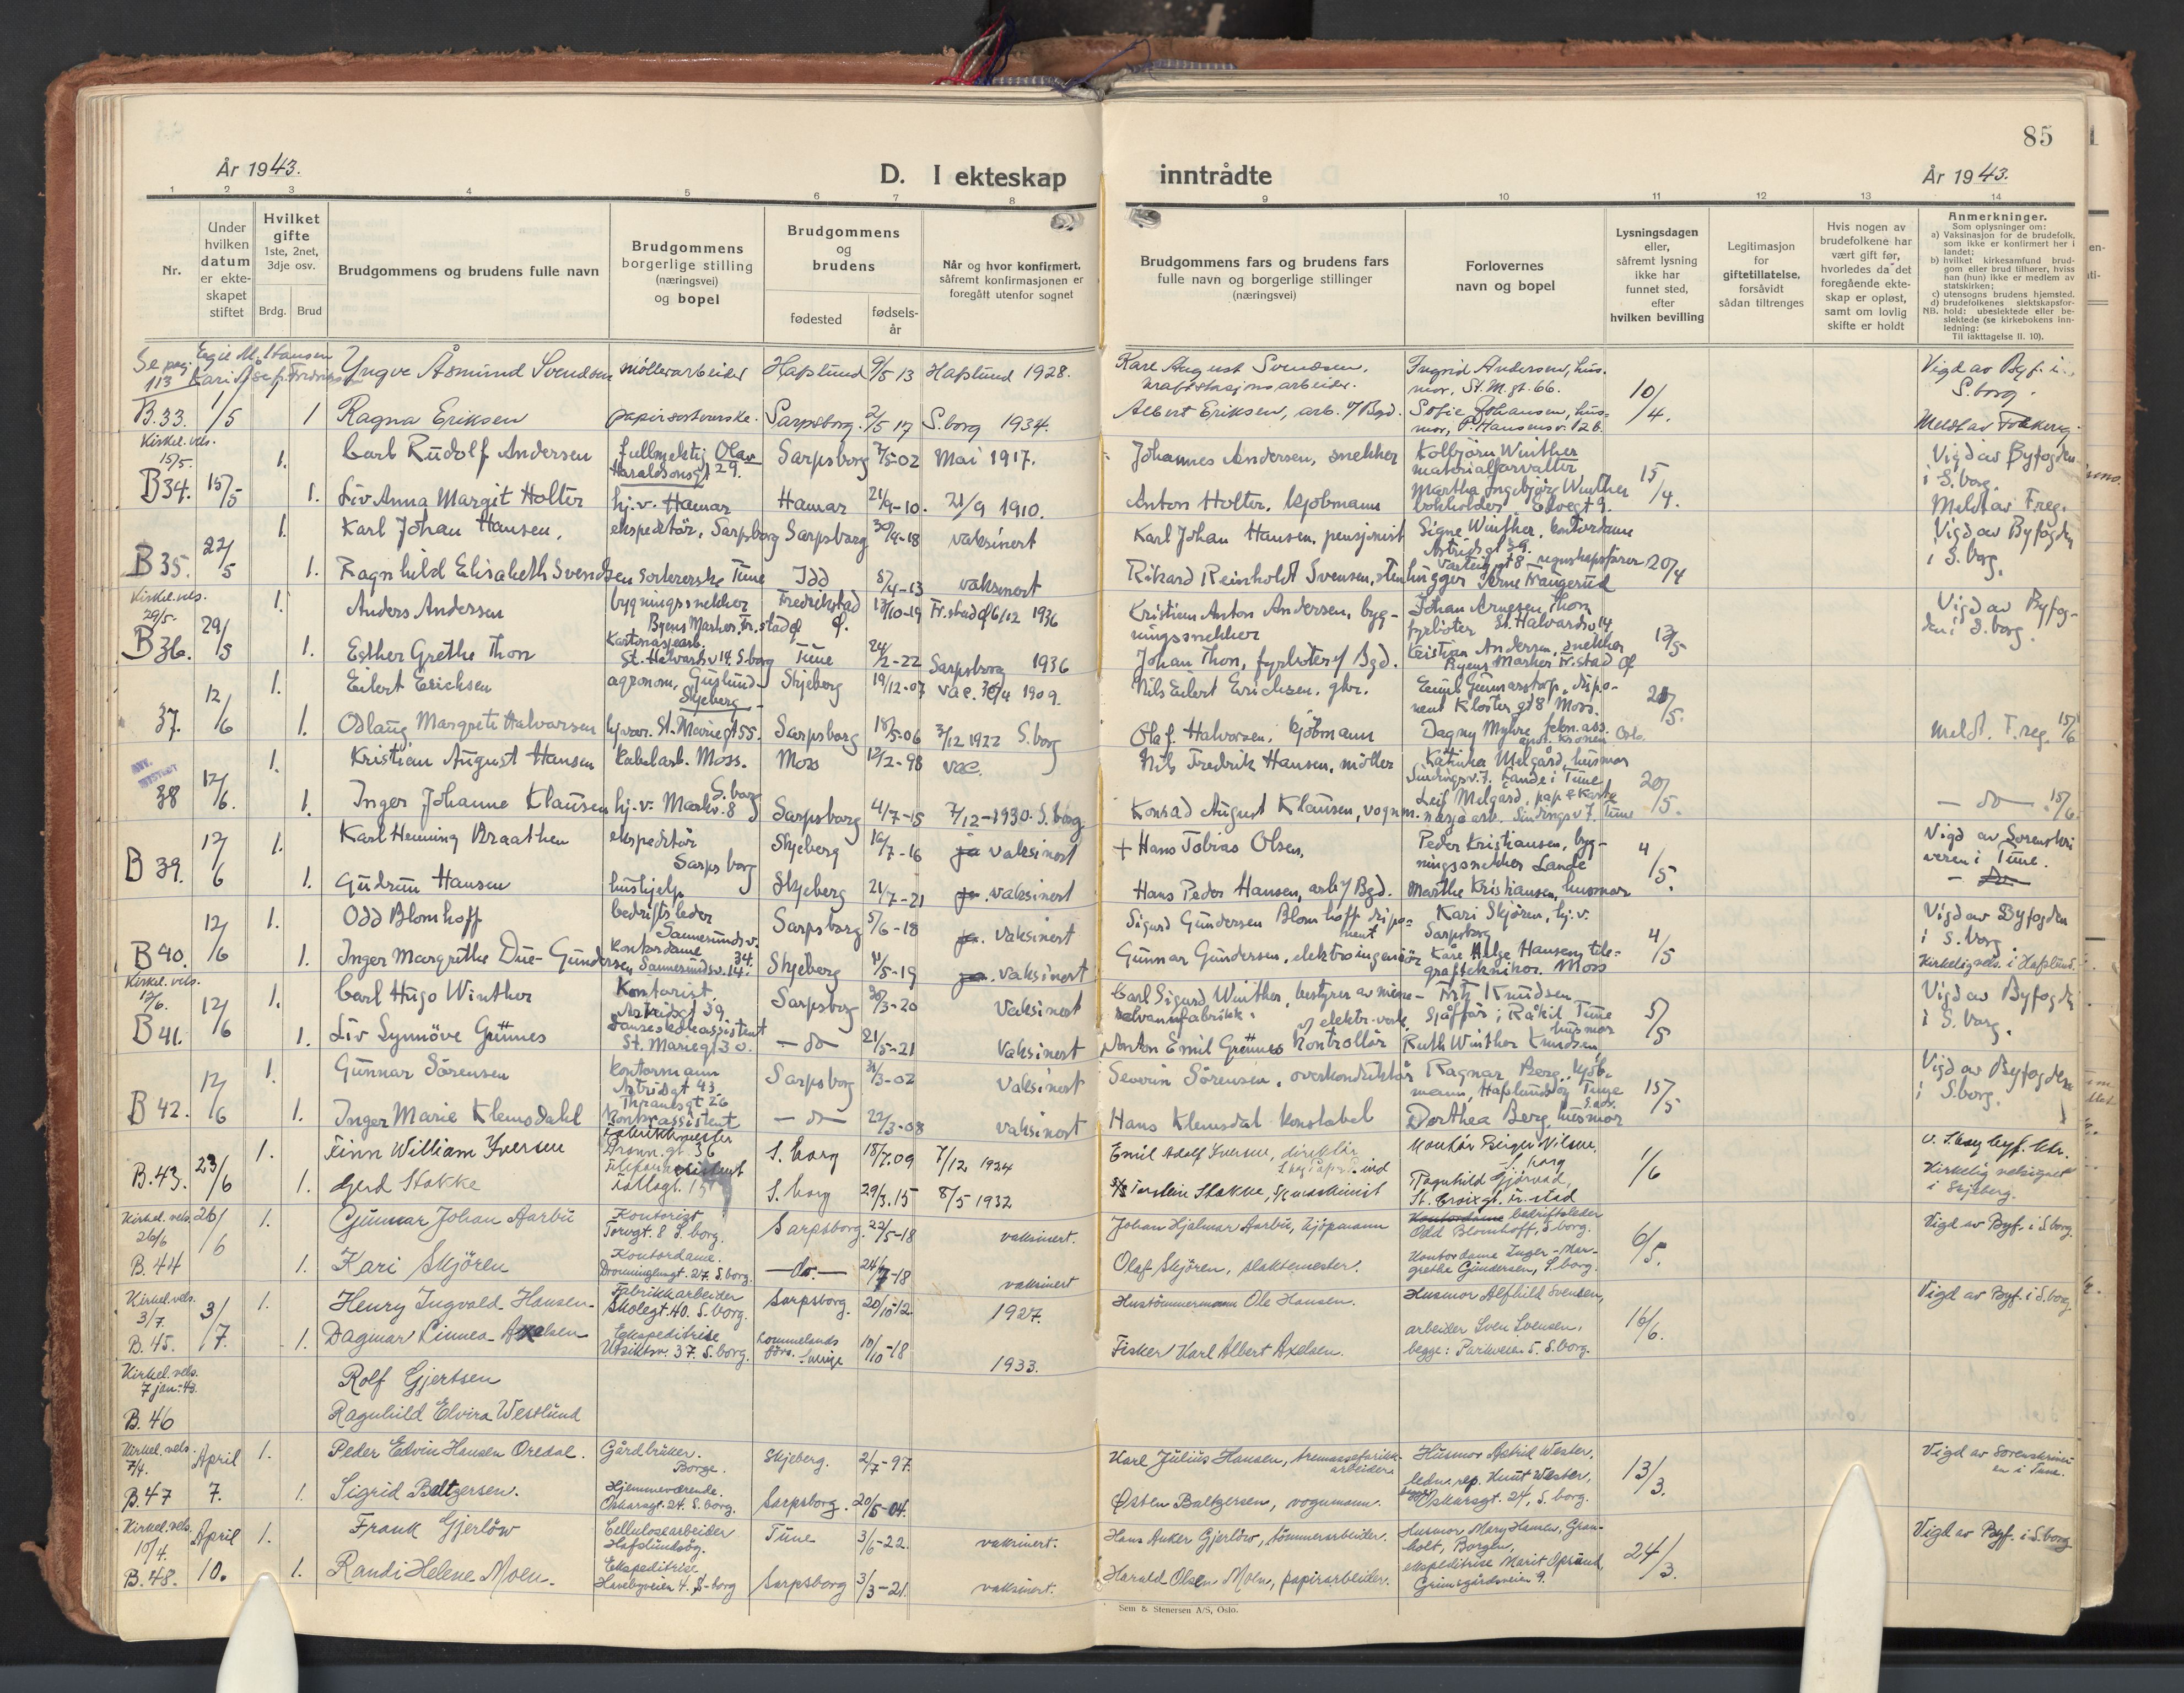 85
År 1943.
D. I ekteskap inntrådte
År 1943.
1 2 3 4 5 6 7 8 9 10 11 12 13 14
Nr.
Under hvilken datum er ekteskapet stiftet
Hvilket gifte 1ste, 2net, 3dje osv.
Brdg. Brud
Brudgommens og brudens fulle navn
Brudgommens borgerlige stilling (næringsvei) og bopel
Brudgommens og brudens
fødested
fødselsår
Når og hvor konfirmert, såfremt konfirmasjonen er foregått utenfor sognet
Brudgommens fars og brudens fars fulle navn og borgerlige stillinger (næringsvei)
Forlovernes navn og bopel
Lysningsdagen eller, såfremt lysning ikke har funnet sted, efter hvilken bevilling
Legitimasjon for giftetillatelse, forsåvidt sådan tiltrenges
Hvis nogen av brudefolkene har vært gift før, hvorledes da det foregående ekteskap er opløst, samt om lovlig skifte er holdt
Anmerkninger.
Som oplysninger om:
a) Vaksinasjon for de brudefolk, som ikke er konfirmert her i landet;
b) hvilket kirkesamfund brudgom eller brud tilhører, hviss han (hun) ikke er medlem av statskirken;
c) utensogns brudens hjemsted.
d) brudefolkenes slektskapsforhold: ubeslektede eller beslektede (se kirkebokens innledning:
NB. Til iakttagelse II. 10).
Se pag. 113
Yngve Åsmund Svendsen møllerarbeider Hafslund 9/5 13 Hafslund 1928. Kare August Svendsen, Ingrid Andersen, hus- Vigd av Byf. i
kraftstasjonsarbeider. mor, St. M. gt. 66. 10/4. S.borg.
B.33. 1/5 1 Ragna Eriksen papirsorterske. Sarpsborg. 2/5 17 S.borg 1934. Albert Eriksen, arb. v/ Bgd. Sofie Johansen, hus-
mor, P. Hansensv. 12b. Meldt av
Kirkel. vels. 15/5. 1. Carl Rudolf Andersen fullmektig Olav Haraldsonsgt 29. Sarpsborg 7/5-02 Mai 1917. Johannes Andersen, snekker Kolbjørn Winther Vigd av Byfogden
materialforvalter 15/4. i S.borg.
B34. 15/5 1. Liv Anna Margit Holter hj.v. Hamar Hamar 21/9-10. 21/9 1910. Anton Holter, kjøbmann Martha Ingebjørg Winther
bokholder Elvegt 9. Meldt av Freg.
1. Karl Johan Hansen, ekspeditør, Sarpsborg Sarpsborg 30/9-18 vaksinert Karl Johan Hansen, pensjonist Signe Winther, kontordame Vigd av Byfogden
Astridsgt 39. i S.borg.
B35. 22/5 1. Ragnhild Elisabeth Svendsen sortererske Tune Idd 5/4-13 vaksinert Rikard Reinholdt Svensen, stenhugger regnskapsfører 20/4
Kirkel. vels. 29/5- 1. Anders Andersen bygningssnekker Fredrikstad 13/10-19 Fr.stad Ø 6/12 1936 Kristian Anton Andersen, byg- Johan Arnesen Thon Vigd av Byfog-
ningssnekker fyrbøter St. Halvardsv 14 13/5 den i S.borg.
B36. 29/5 1. Esther Grethe Thon Kartonasjearb. St. Halvardsv 14. S.borg Tune 24/2-22 Sarpsborg 1936 Johan Thon, fyrbøter v/ Bgd. Kristian Andersen, snekker
Byens Marker Fr.stad Ø
12/6 1. Eilert Erichsen agronom, Skjeberg Skjeberg 19/12-07 vac. 30/4 1909. Nils Eilert Erichsen, gbr. Emil Gunnarstorp, dispo-
nent Kloster gt 8 Moss.
37. 1. Odlaug Margrete Halvorsen hj.vær. St. Marie gt 55. Sarpsborg 18/5-06 3/12 1922 S.borg Olaf Halvorsen, kjøbmann Dagny Myhre, Oslo. meldt. F. reg. 15/6
1. Kristian August Hansen Kabelarb. Moss. Moss 12/2-98 vac. Nils Fredrik Hansen, møller Katinka Melgård, husmor
Sindingsv. 7. Lande i Tune 20/5.
38 12/6. 1. Inger Johanne Klausen hj.v. Maskv. 8 S.borg Sarpsborg 4/7-15 7/12-1930. S.borg. Konrad August Klausen, vognm. Leif Melgård, Sindingsv 7. Tune — do — 15/6
1. Karl Henning Braathen ekspeditør Sarpsborg Skjeberg 16/7-16 ja vaksinert + Hans Tobias Olsen, Peder Kristiansen, byg- Vigd av Sorenskri
ningssnekker Lande 4/5. veren i Tune.
B 39. 12/6 1. Gudrun Hansen hushjelp Skjeberg 21/7-21 ja. vaksinert Hans Peder Hansen, arb. v/ Bgd. Marthe Kristiansen, husmor — do —
1. Odd Blomhoff bedriftsleder Sannesundsv. 34. Sarpsborg 5/6-18 ja. vaksinert Sigurd Gundersen Blomhoff disponent Kari Skjøren, hj.v. Vigd av Byfogden
Sarpsborg 4/5 i S.borg
B40. 12/6 1. Inger Margrethe Due-Gundersen Kontordame Sannesundsv. 14. Skjeberg 11/5-19 ja. vaksinert Gunnar Gundersen, elektroingeniør Kåre Helge Hansen, tele-
graftekniker. Moss Kirkelig vels. i Hafslund.
Kirkel. vels. 12/6. 1. Carl Hugo Winther Kontorist Astridsgt 39 Sarpsborg 30/3-20 vaksinert Carl Sigurd Winther, bestyrer av mine- Knudsen Vigd av Byfogden
ralvannfabrikk. Sjåffør; Råkil Tune 5/5 i S.borg.
B41. 12/6 1. Liv Synnøve Grünes St. Mariegt 30. — do — 21/5-21 vaksinert Anton Emil Grünes Kontrollør v/ elektr. verk. Ruth Winther Knudsen, husmor
1. Gunnar Sörensen Kontormann Astridsgt 43. Sarpsborg 31/3-02 vaksinert Severin Sörensen, overkonduktør Ragnar Berg, kjøb- Vigd av Byfogden
mann, Hafslundsøy Tune 15/5 i S.borg.
B 42. 12/6 1. Inger Marie Klemsdahl Kontorassistent — do — 22/3-08 vaksinert Hans Klemsdal konstabel Dorthea Berg husmor
1. Finn William Iversen Dronn. gt. 36 S.borg 18/7.09 7/12 1924 Emil Adolf Iversen, direktør Kontor Birger Nilsen
S.borg 1/6
B.43. 23/6 1. Gerd Stokke S.borg 29/3.15 8/5 1932 Torstein Stokke, maskinist Ragnhild Gjörvad,
St. Croixgt. Fr.stad Kirkelig velsignet i Skjeberg.
Kirkel. vels. 26/6 26/6 1. Gunnar Johan Aarbu Kontorist Torvgt. 8 S.borg. Sarpsborg. 22/5-18 vaksinert. Johan Hjalmar Aarbu, kjøpmann Kontordame bedriftsleder Vigd av Byf. i S.borg.
Odd Blomhoff, S.borg. 6/5.
B.44 1. Kari Skjören Kontordame. Dronninglungt. 27. S.borg. — do. — 24/7-18 vaksinert Olaf Skjören, slaktemester. Kontordame Inger-Mar-
grethe Gundersen, S.borg.
Kirkel. vels. 3/7. 3/7. 1. Henry Ingvald Hansen Fabrikkarbeider Skolegt. 40. S.borg. Sarpsborg. 20/10-12 1927. Hustömmermann Ole Hansen. Husmor Alfhild Svensen, Vigd av Byf. i S.borg.
16/6.
B.45. 1. Dagmar Linnea Axelsen Ekspeditrise Utsiktsv. 37. S.borg. Lommelands Sverige 10/10-18 1933. Fisker Karl Albert Axelsen. arbeider Sven Svensen,
begge: Parkveien 5. S.borg.
Kirkel. vels. 7 jan.-43. Rolf Gjertsen
B.46 Ragnhild Elvira Westlund
Kirkel. vels. 7/4. April 1. Peder Edvin Hansen Oredal. Gårdbruker. Borge. Skjeberg. 2/7-97. Karl Julius Hansen, tremassefabrikk- arbeider. Husmor Astrid Wester, Vigd av Sorenskriver-
en i Tune.
B.47 7. 1. Sigrid Baltzersen. Hjemmeværende. Oskarsgt. 24. S.borg. Sarpsborg. 20/5-04. Østen Baltzersen, vognmann. rep. Knut Wester, 13/3.
begge Oskarsgt. 24, S.borg.
Kirkel. vels. 10/4. April 1. Frank Gjerlöw Cellulosearbeider Hafslundsøy. Tune 3/6-22. vaksinert. Hans Anker Gjerlöw, tömmerarbeider. Husmor Mary Hansen, Gran- Vigd av Byf. i S.borg
holt, Borgen, 24/3.
B.48. 10. 1. Randi Helene Moen. Ekspeditrise Havebyveien 4. S-borg Sarpsborg 3/3-21. vaksinert. Harald Olsen Moen, papirarbeider. ekspeditrise Marit Opsund,
Grimsgårdsveien 9.
Sem & Stenersen A/S, Oslo.